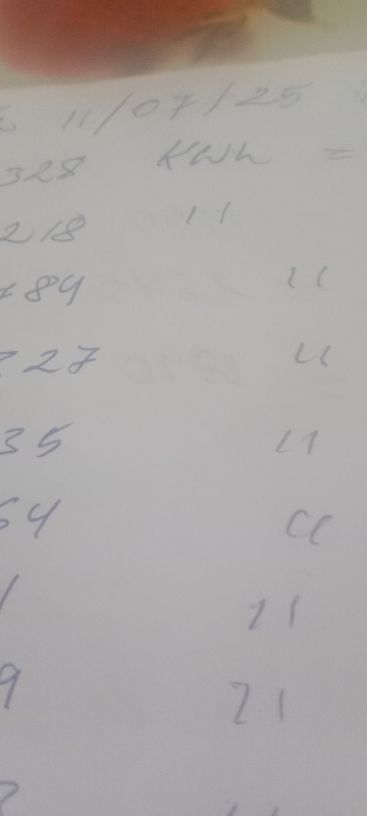 11/07/25
328 KWh =
218 "
784 "
227 "
35 "
64 "
1 "
9 "